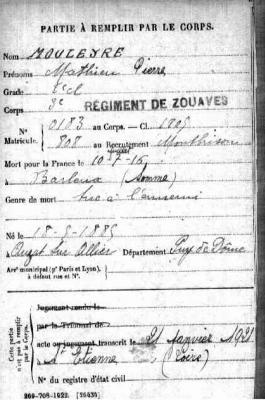 PARTIE À REMPLIR PAR LE CORPS.
Nom MOULEYRE
Prénoms Mathieu Pierre
Grade 2e cl
Corps 3e RÉGIMENT DE ZOUAVES
N° Matricule. 0183 au Corps. — Cl. 1905
808 au Recrutement Montbrison
Mort pour la France le 10-7-16
à Barleux (Somme)
Genre de mort tué à l'ennemi
Né le 18-9-1885
à Auzat sur Allier Département Puy de Dôme
Arrt municipal (pr Paris et Lyon),
à défaut rue et N°.
Cette partie n'est pas à remplir par le Corps.
Jugement rendu le
par le Tribunal de
acte ou jugement transcrit le 21 Janvier 1921
à St Etienne (Loire)
N° du registre d'état civil
269-708-1922. [26434]